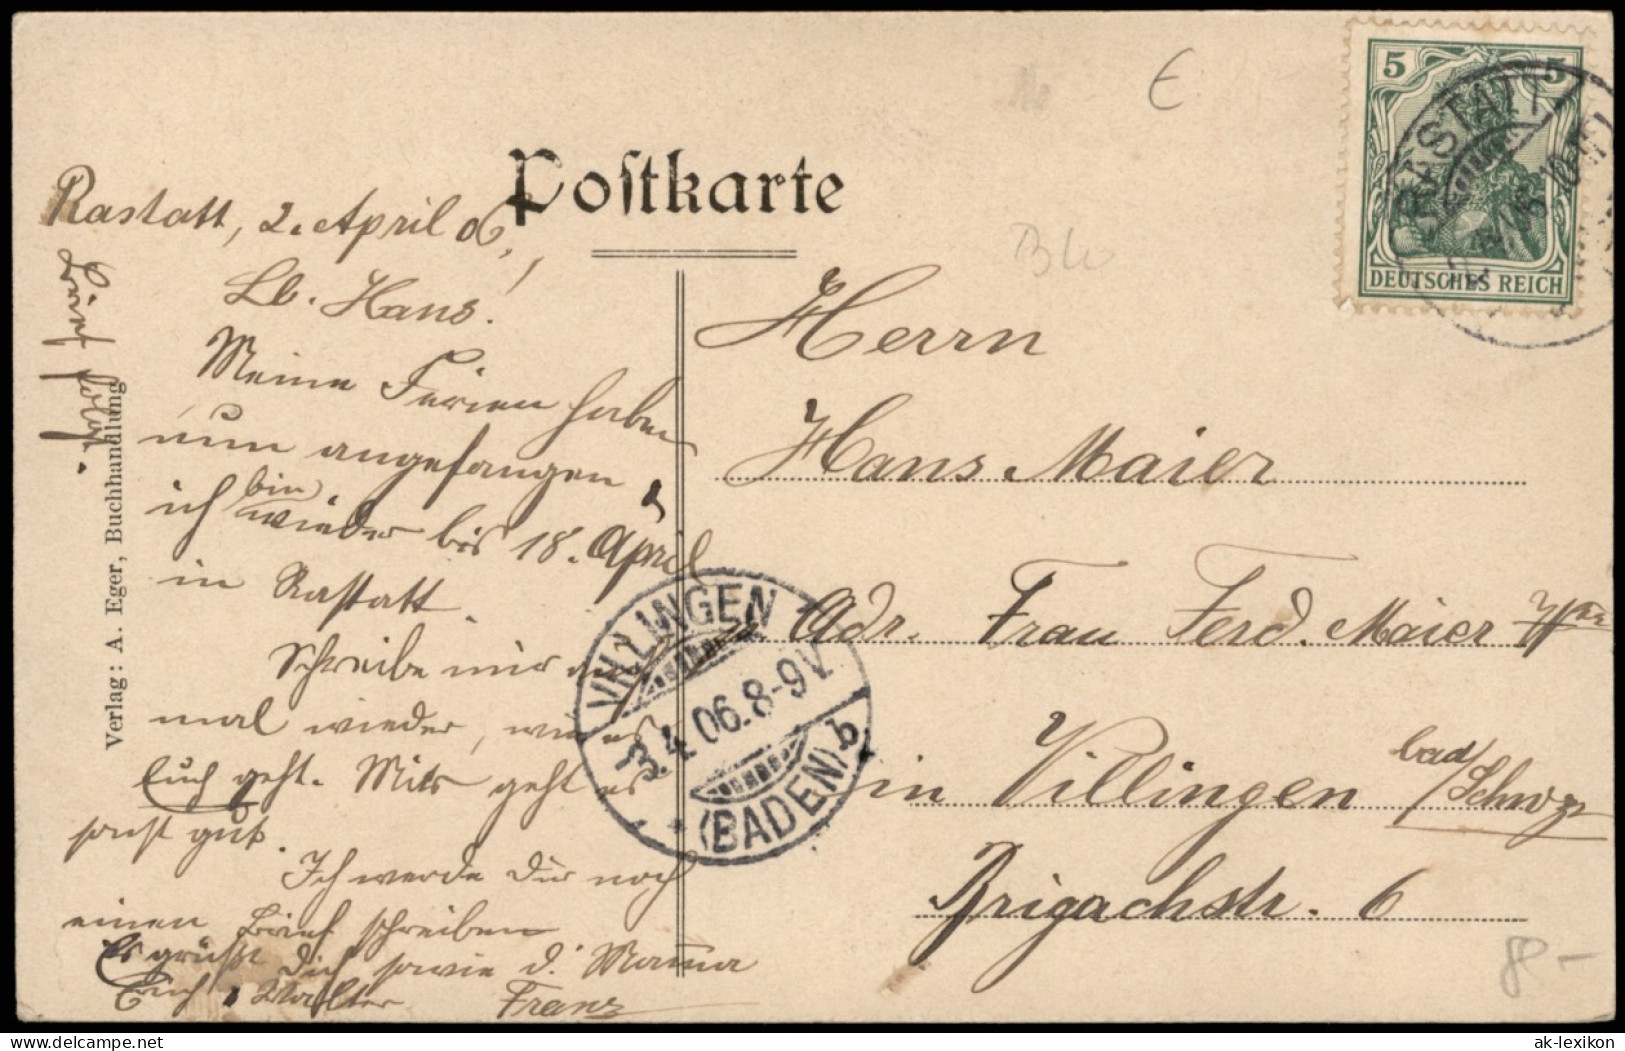 Postkarte
Rastatt, 2. April 06.
Lb. Hans!
Meine Ferien haben
nun angefangen,
ich bin wieder bis 18. April
in Rastatt.
Schreibe mir auch
mal wieder, wie es
Euch geht. Mir geht es
sonst gut.
Ich werde Dir noch
einen Brief schreiben
Es grüßt Dich sowie d. Mama
Erich, Walter Franz
Brief folgt.
Verlag: A. Eger, Buchhandlung
E
5 5
DEUTSCHES REICH
RASTATT
Herrn
Hans Maier
Adr. Frau Ferd. Maier Wwe
in Villingen bad/Schwz
Brigachstr. 6
VILLINGEN
3.4.06.8-9V.
* (BADEN) b
80-
ak-lexikon
www.delcampe.net